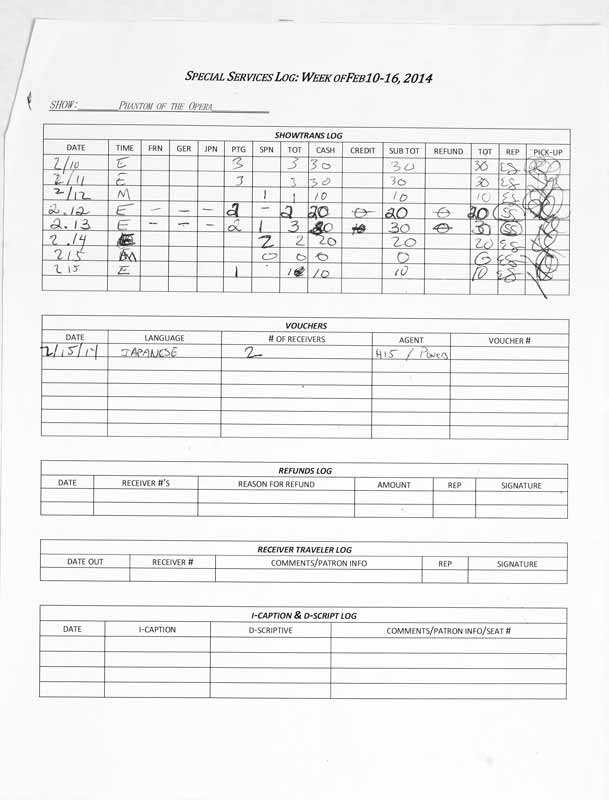 SPECIAL SERVICES LOG: WEEK OF FEB 10-16, 2014
SHOW: PHANTOM OF THE OPERA
SHOWTRANS LOG
DATE TIME FRN GER JPN PTG SPN TOT CASH CREDIT SUB TOT REFUND TOT REP PICK-UP
2/10 E 3 3 30 30 30 ES
2/11 E 3 3 30 30 30 ES
2/12 M 1 1 10 10 10 ES
2.12 E - - - 2 - 2 20 0 20 0 20 SS
2.13 E - - - 2 1 3 30 0 30 SS
2.14 E 2 2 20 20 20 ES
215 M 0 0 0 0 0 ES
215 E 1 1 10 10 10 ES
VOUCHERS
DATE LANGUAGE # OF RECEIVERS AGENT VOUCHER #
2/15/14 JAPANESE 2 HIS /
REFUNDS LOG
DATE RECEIVER #'S REASON FOR REFUND AMOUNT REP SIGNATURE
RECEIVER TRAVELER LOG
DATE OUT RECEIVER # COMMENTS/PATRON INFO REP SIGNATURE
I-CAPTION & D-SCRIPT LOG
DATE I-CAPTION D-SCRIPTIVE COMMENTS/PATRON INFO/SEAT #